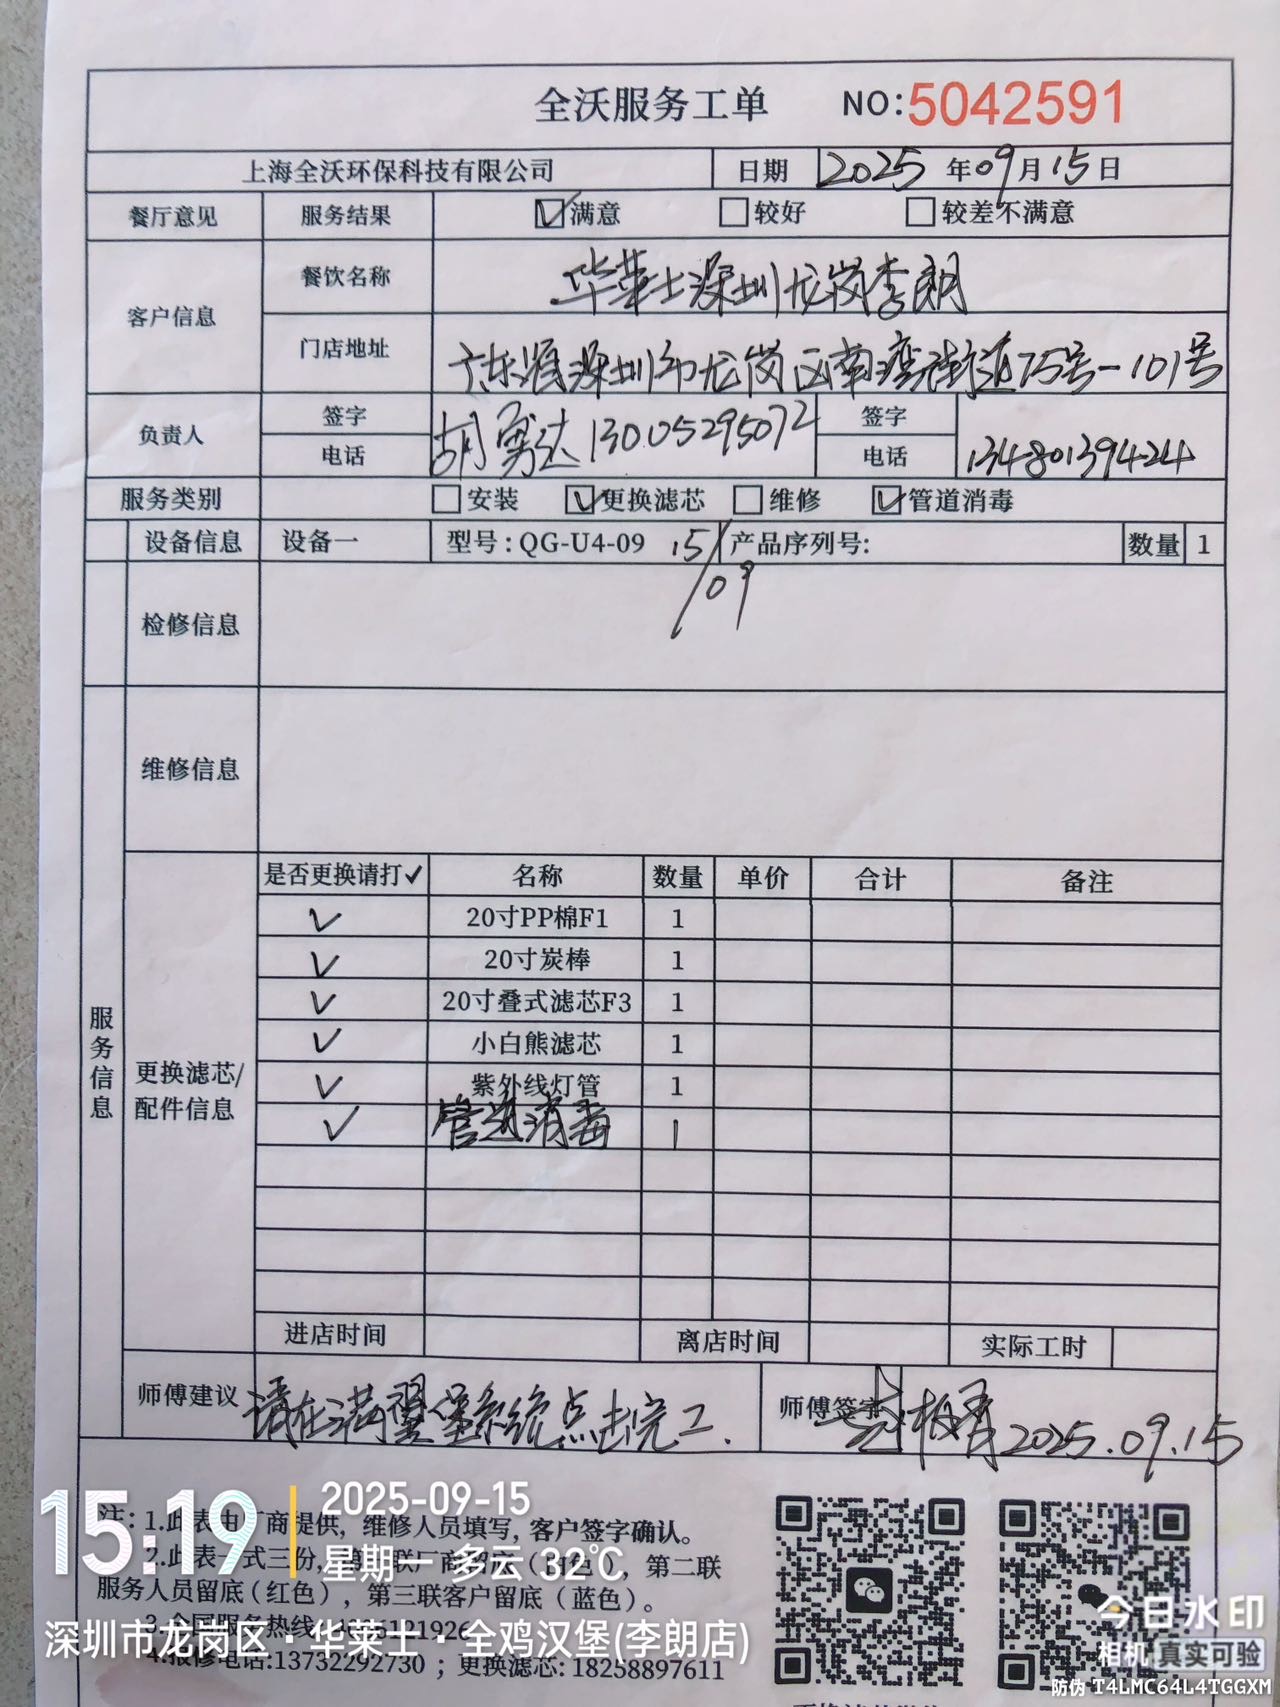 全沃服务工单 NO:5042591
上海全沃环保科技有限公司 日期 2025年09月15日
餐厅意见 服务结果 ☑满意 □较好 □较差不满意
客户信息 餐饮名称 华莱士深圳龙岗李朗
门店地址 广东省深圳市龙岗区南湾街道75号-101号
负责人 签字 胡勇达 13005295072 签字
电话 电话 13480139424
服务类别 □安装 ☑更换滤芯 □维修 ☑管道消毒
设备信息 设备一 型号:QG-U4-09 15/09 产品序列号: 数量 1
检修信息
维修信息
服务信息
更换滤芯/配件信息
是否更换请打✓ 名称 数量 单价 合计 备注
✓ 20寸PP棉F1 1
✓ 20寸炭棒 1
✓ 20寸叠式滤芯F3 1
✓ 小白熊滤芯 1
✓ 紫外线灯管 1
✓ 管道消毒 1
进店时间 离店时间 实际工时
师傅建议 请在满翼堡系统点击完工. 师傅签字 2025.09.15
注: 1.此表由厂商提供, 维修人员填写, 客户签字确认。
2.此表一式三份, 第一联厂商留底(白色), 第二联
服务人员留底(红色), 第三联客户留底(蓝色)。
3.全国服务热线
4.报修电话:13732292730 ; 更换滤芯: 18258897611
15:19
2025-09-15
星期一 多云 32℃
深圳市龙岗区·华莱士·全鸡汉堡(李朗店)
今日水印
相机 真实可验
防伪 T4LMC64L4TGGXM